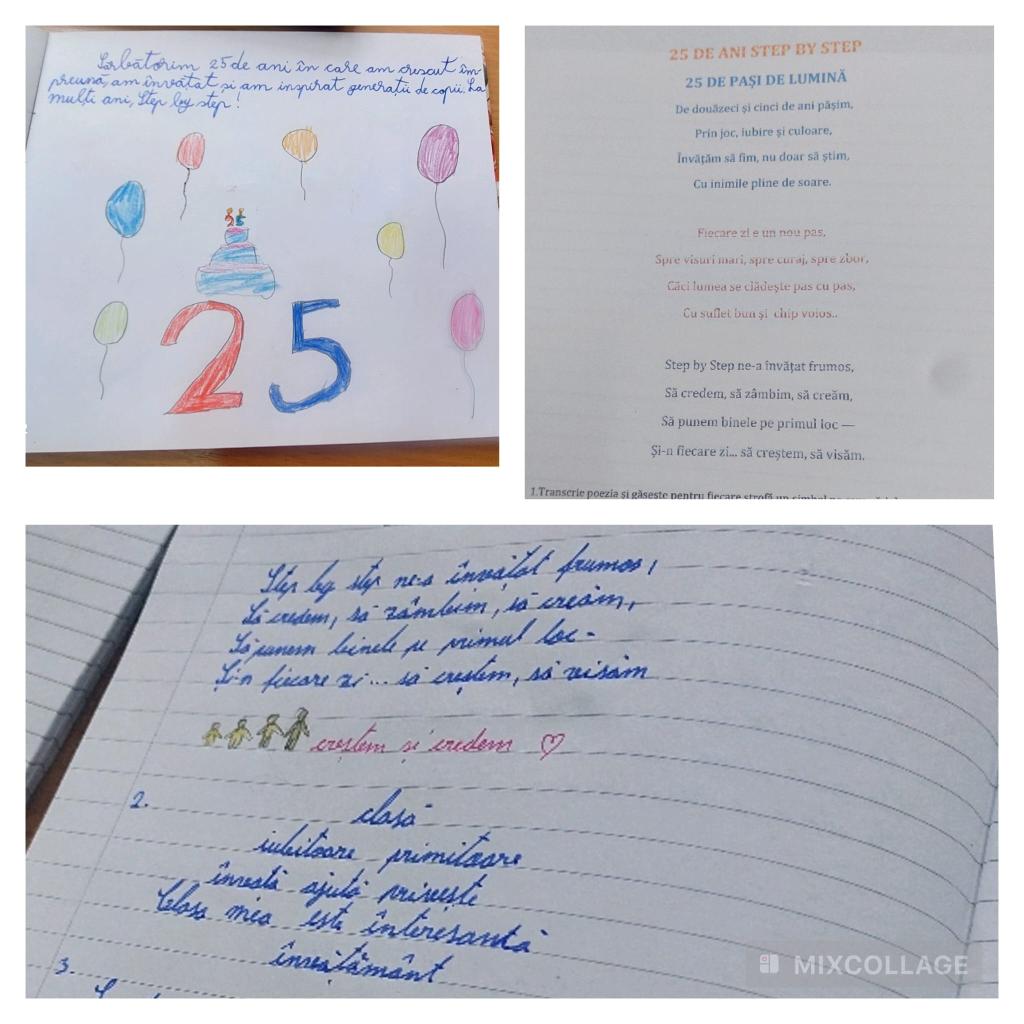 Sărbătorim 25 de ani în care am crescut îm-
preună, am învățat și am inspirat generații de copii. La
mulți ani, Step by step!
25
25
25 DE ANI STEP BY STEP
25 DE PAȘI DE LUMINĂ
De douăzeci și cinci de ani pășim,
Prin joc, iubire și culoare,
Învățăm să fim, nu doar să știm,
Cu inimile pline de soare.
Fiecare zi e un nou pas,
Spre visuri mari, spre curaj, spre zbor,
Căci lumea se clădește pas cu pas,
Cu suflet bun și chip voios..
Step by Step ne-a învățat frumos,
Să credem, să zâmbim, să creăm,
Să punem binele pe primul loc —
Și-n fiecare zi... să creștem, să visăm.
1.Transcrie poezia și găsește pentru fiecare strofă un simbol
Step by step ne-a învățat frumos,
Să credem, să zâmbim, să creăm,
Să punem binele pe primul loc -
Și-n fiecare zi... să creștem, să visăm
creștem și credem
2.
clasă
iubitoare primitoare
învață ajută privește
Clasa mea este interesantă
învățământ
3.
MIXCOLLAGE